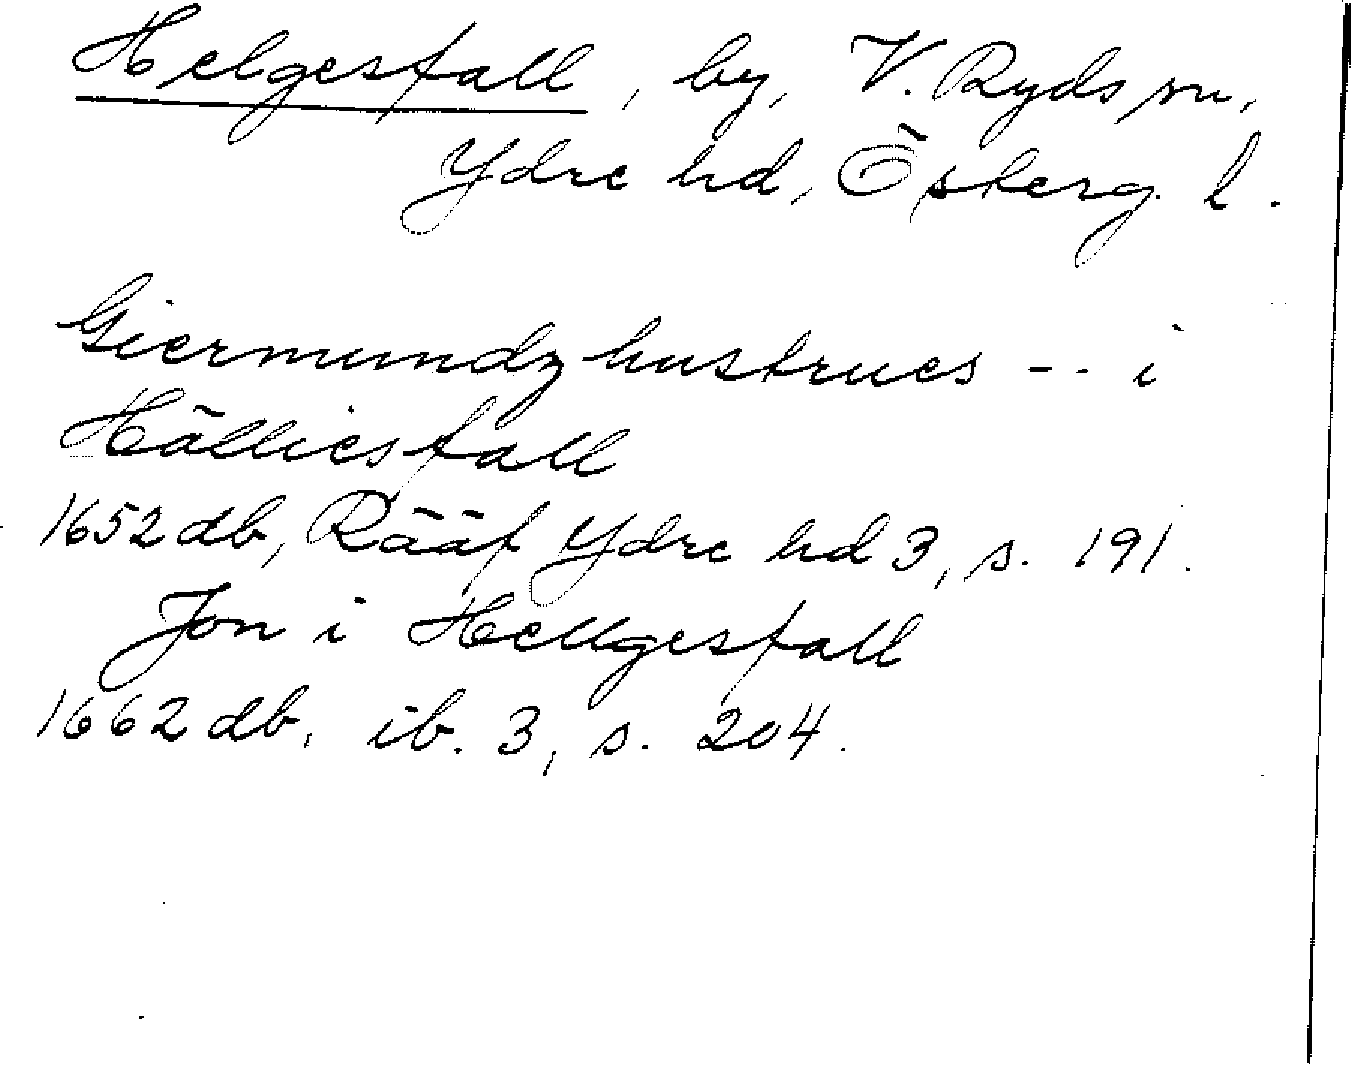 Helgesfall, by, V. Ryds sn,
Ydre hd, Österg. l.
Giermundz hustrues -- i
Hälliesfall
1652 db, Rääf Ydre hd 3, s. 191.
Jon i Hellgesfall
1662 db, ib. 3, s. 204.